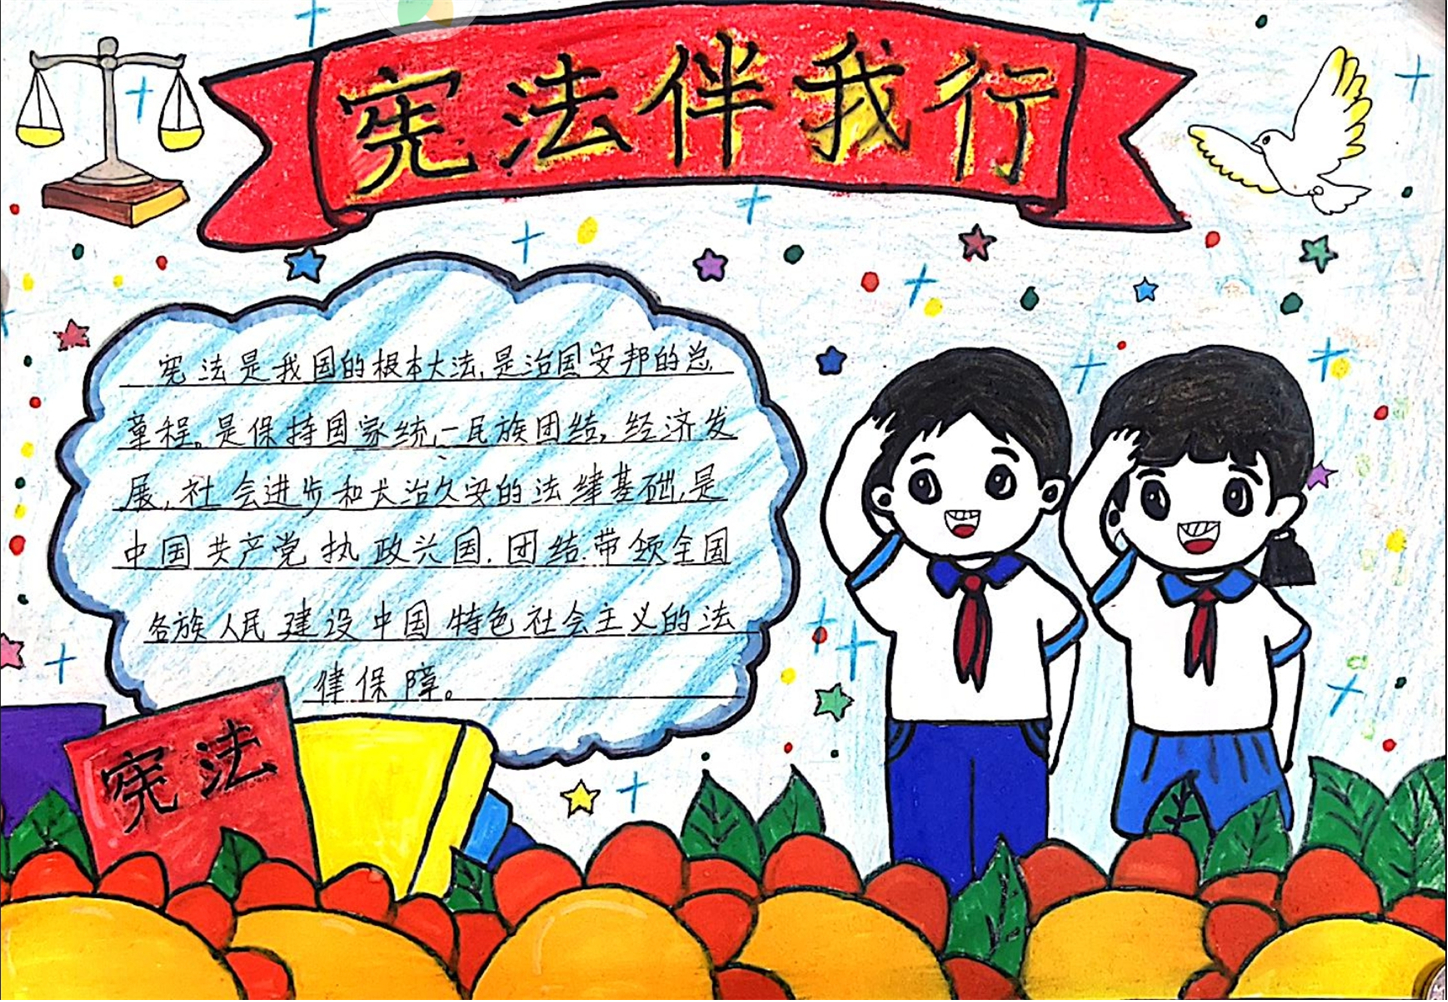 宪法伴我行
宪法是我国的根本大法,是治国安邦的总
章程。是保持国家统一,民族团结,经济发
展,社会进步和大治久安的法律基础,是
中国共产党执政兴国.团结.带领全国
各族人民建设中国特色社会主义的法
律保障。
宪法